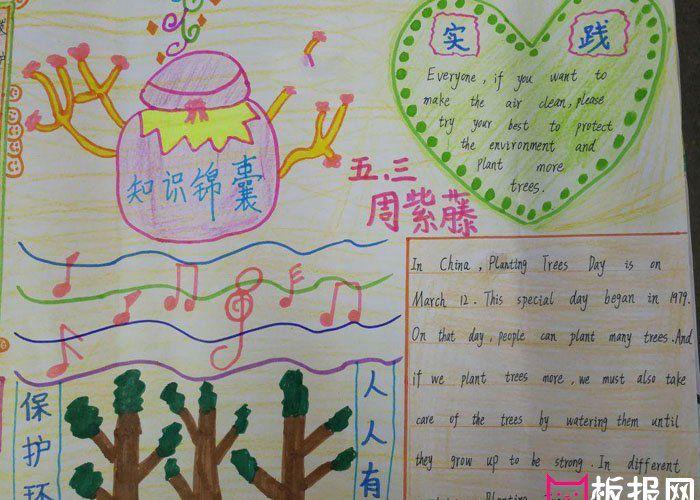 知识锦囊
五.三
周紫藤
实践
Everyone, if you want to
make the air clean, please
try your best to protect
the environment and
plant more
trees.
In China, Planting Trees Day is on
March 12. This special day began in 1979.
On that day, people can plant many trees. And
if we plant trees more, we must also take
care of the trees by watering them until
they grow up to be strong. In different
Planting
保护环
人人有
板报网